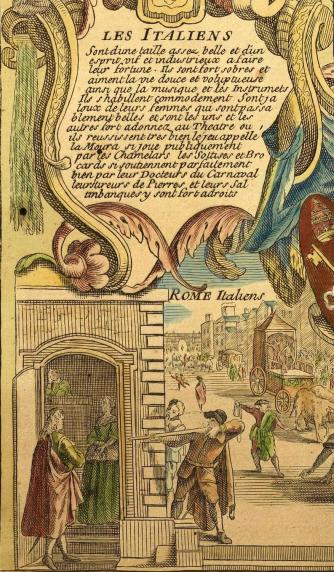 LES ITALIENS
Sont d'une taille assez belle et d'un
esprit vif et industrieux a faire
leur fortune. Ils sont fort sobres et
aiment la vie douce et voluptueuse
ainsi que la musique et les Instrumets
Ils s'habillent commodement. Sont ja
loux de leurs femmes qui sont passa
blement belles et sont les uns et les
autres fort adonnez au Theatre ou
ils reussissent tres bien le jeu appelle
la Moura si joue publiquement
par les Chamelars les Sottises et Bro
cards si soutiennent parfaitement
bien par leur Docteurs du Carnaval
leurs tireurs de Pierres et leurs Sal
timbanques y sont fort adroits
ROME Italiens